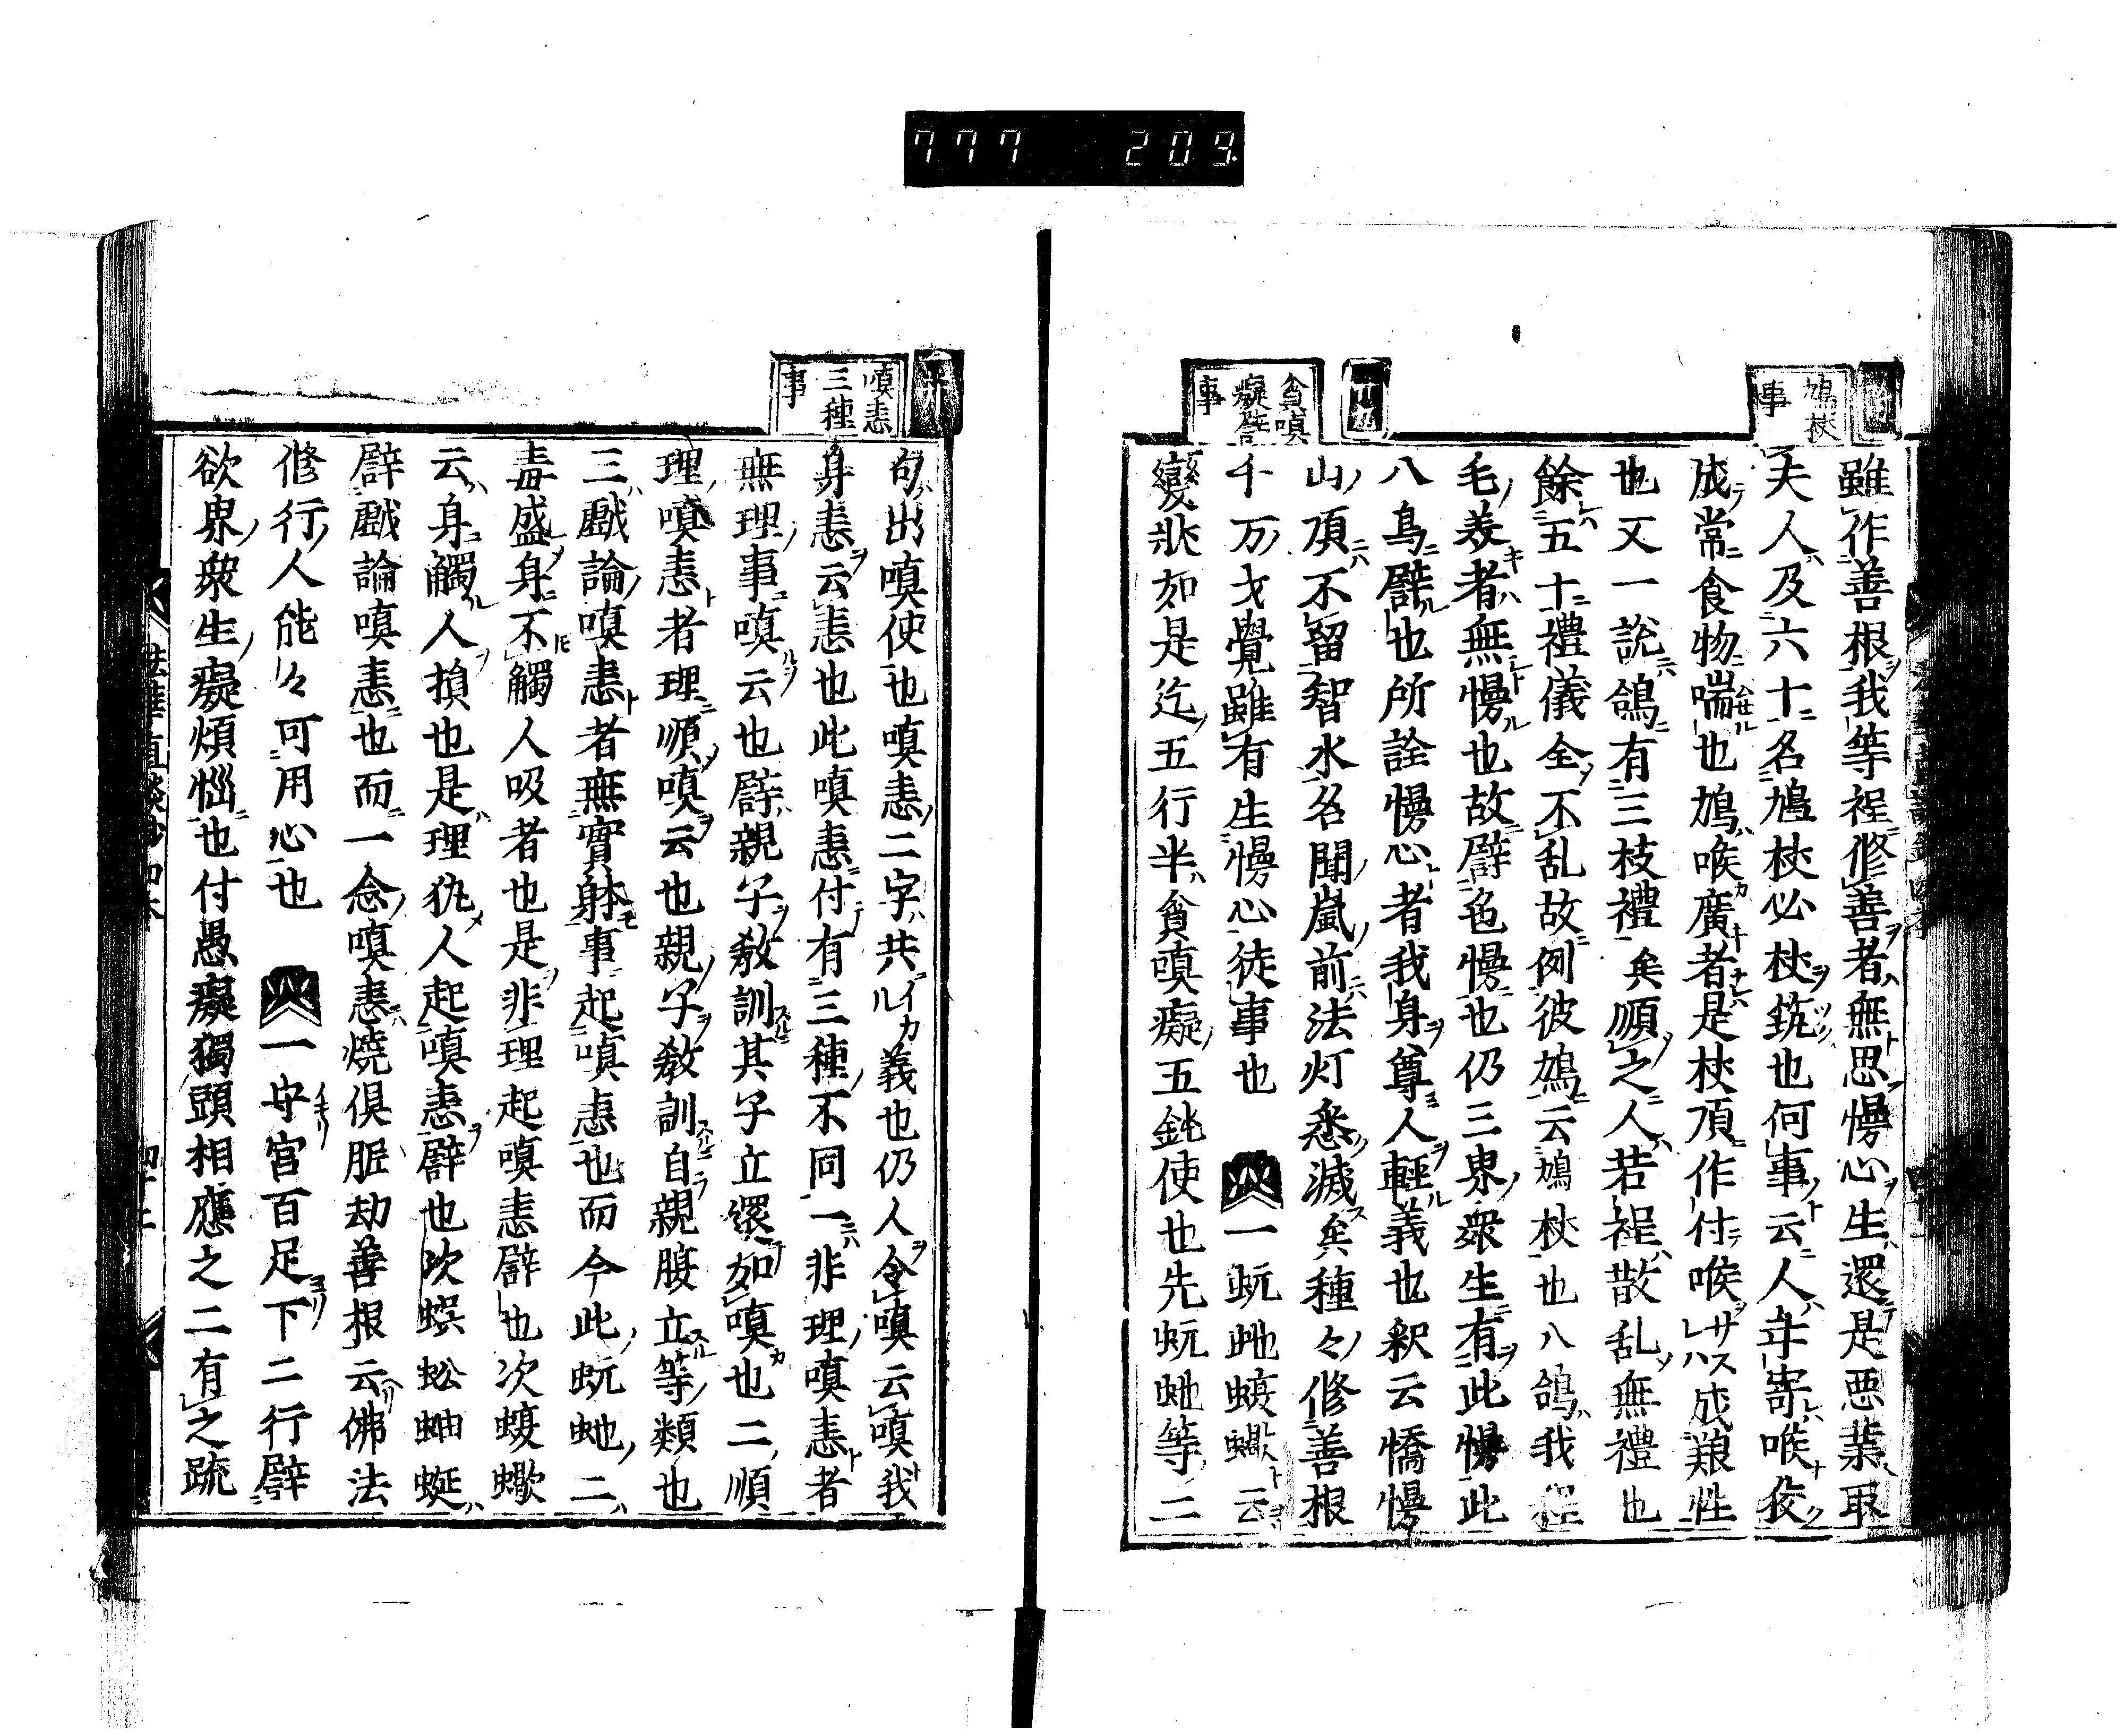 777 209
鳩杖
事
雖作善根我等程修善者無思慢心生還是悪業取
夫人及六十名鳩杖必杖銃也何事云人年寄喉佼
成常食物喘也鳩喉廣者是杖頂作付喉サスレハ成難性
也又一説鴿有三枝禮矣順之人若程散乱無禮也
餘五十禮儀全不乱故例彼鳩云鳩杖也八鴿我程
毛美者無慢也故譬色慢也仍三界衆生有此慢此
八鳥譬也所詮慢心者我身尊人輕義也釈云憍慢
山頂不留智水名聞嵐前法灯悉滅矣種々修善根
千万才覺雖有生慢心徒事也 一蚖虵蝮蠍云
貪嗔
癡譬
事
變状如是迄五行半貪嗔癡五鈍使也先蚖虵等二
嗔恚
三種
事
句出嗔使也嗔恚二字共イカル義也仍人令嗔云嗔我
身恚云恚也此嗔恚付有三種不同一非理嗔恚者
無理事嗔云也譬親子敎訓其子立還如嗔也二順
理嗔恚者理順嗔云也親子敎訓自親腹立等類也
三戯論嗔恚者無實躰事起嗔恚也而今此蚖虵二
毒盛身不觸人吸者也是非理起嗔恚譬也次蝮蠍
云身觸人損也是理犯人起嗔恚譬也次蜈蚣蚰蜒
譬戯論嗔恚也而一念嗔恚燒倶胝劫善根云佛法
修行人能々可用心也 一守宮百足下二行譬
欲界衆生癡煩惱也付愚癡獨頭相應之二有之疏